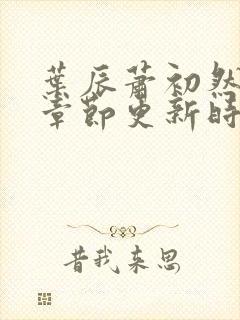 葉辰蕭初然
章節更新時
昔我來思